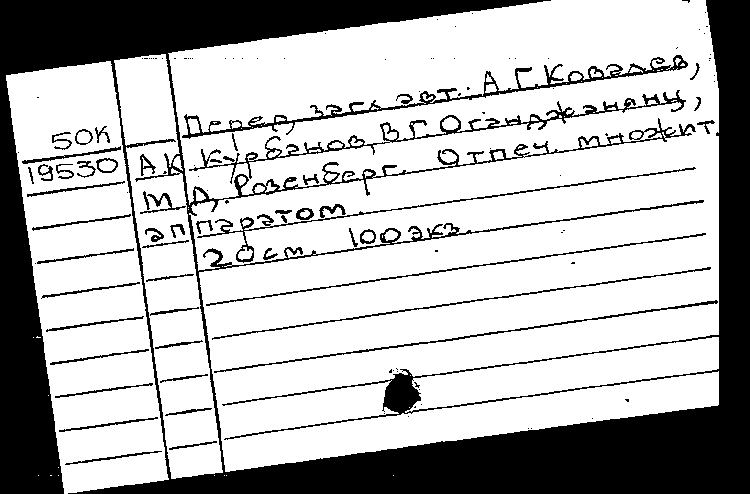 Перед загл авт.: А.Г.Ковалев,
50К
19530 А.К.Курбанов, В Г. Оганджанянц,
М.Д. Розенберг. Отпеч. множит.
аппаратом.
20 см. 100 экз.